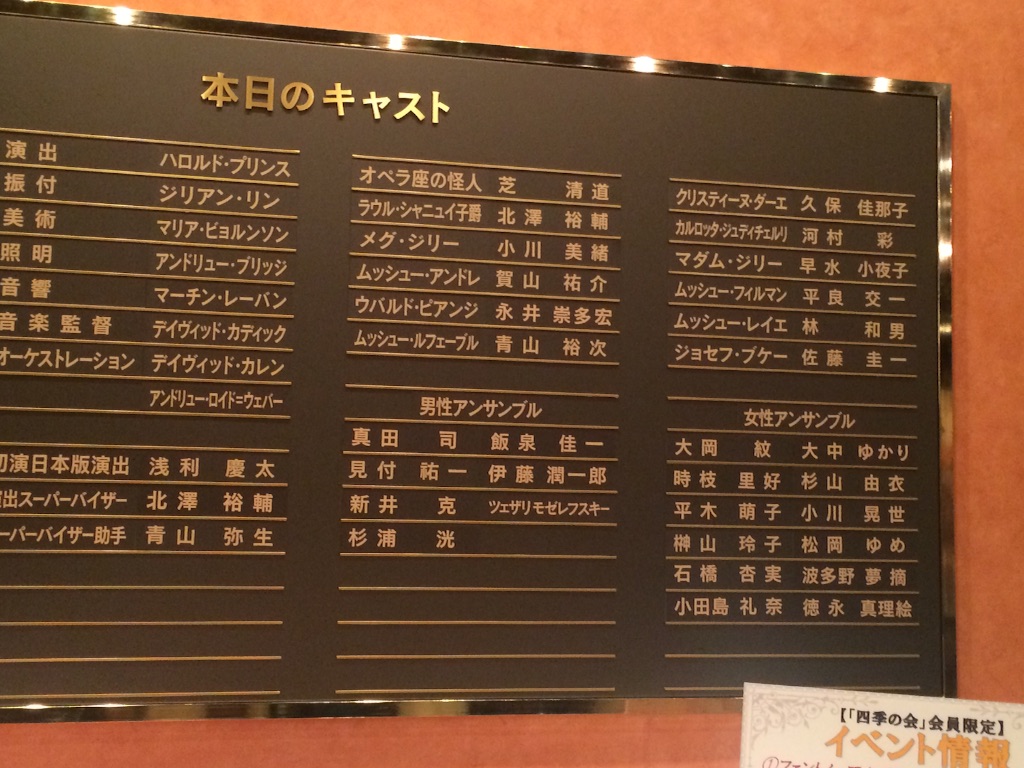 本日のキャスト
演出 ハロルド・プリンス
振付 ジリアン・リン
美術 マリア・ビョルンソン
照明 アンドリュー・ブリッジ
音響 マーチン・レーバン
音楽監督 デイヴィッド・カディック
オーケストレーション デイヴィッド・カレン
アンドリュー・ロイド=ウェバー
初演日本版演出 浅利 慶太
演出スーパーバイザー 北澤 裕輔
ーパーバイザー助手 青山 弥生
オペラ座の怪人 芝 清道
ラウル・シャニュイ子爵 北澤 裕輔
メグ・ジリー 小川 美緒
ムッシュー・アンドレ 賀山 祐介
ウバルド・ピアンジ 永井 崇多宏
ムッシュー・ルフェーブル 青山 裕次
男性アンサンブル
真田 司 飯泉 佳一
見付 祐一 伊藤 潤一郎
新井 克 ツェザリモゼレフスキー
杉浦 洸
クリスティーヌ・ダーエ 久保 佳那子
カルロッタ・ジュディチェルリ 河村 彩
マダム・ジリー 早水 小夜子
ムッシュー・フィルマン 平良 交一
ムッシュー・レイエ 林 和男
ジョセフ・ブケー 佐藤 圭一
女性アンサンブル
大岡 紋 大中 ゆかり
時枝 里好 杉山 由衣
平木 萌子 小川 晃世
榊山 玲子 松岡 ゆめ
石橋 杏実 波多野 夢摘
小田島 礼奈 徳永 真理絵
【「四季の会」会員限定】
イベント情報